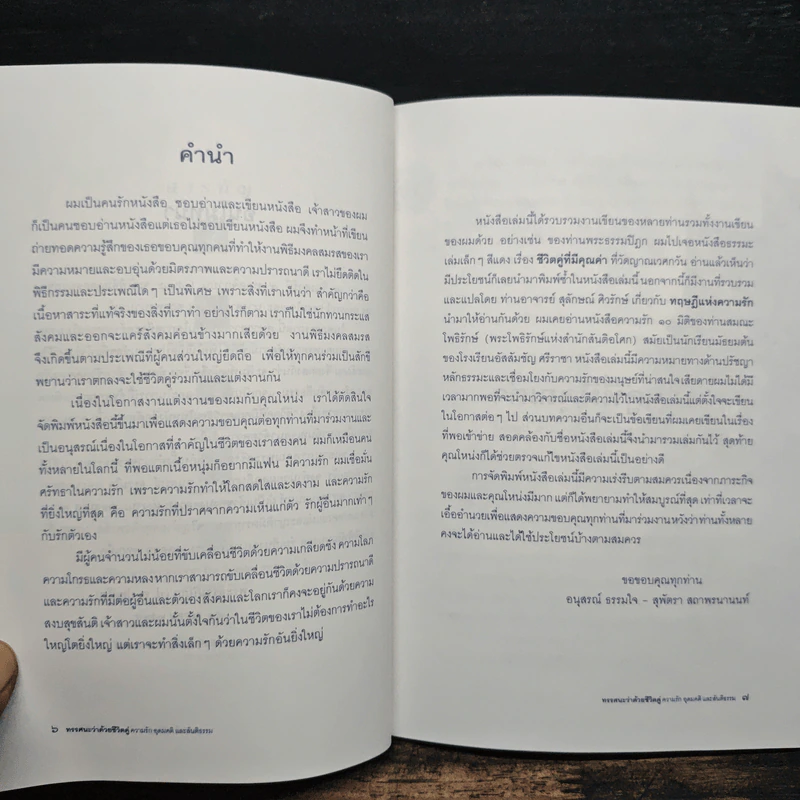 คำนำ
ผมเป็นคนรักหนังสือ ชอบอ่านและเขียนหนังสือ เจ้าสาวของผม
ก็เป็นคนชอบอ่านหนังสือแต่เธอไม่ชอบเขียนหนังสือ ผมจึงทำหน้าที่เขียน
ถ่ายทอดความรู้สึกของเธอขอบคุณทุกคนที่ทำให้งานพิธีมงคลสมรสของเรา
มีความหมายและอบอุ่นด้วยมิตรภาพและความปรารถนาดี เราไม่ยึดติดใน
พิธีกรรมและประเพณีใดๆ เป็นพิเศษ เพราะสิ่งที่เราเห็นว่า สำคัญกว่าคือ
เนื้อหาสาระที่แท้จริงของสิ่งที่เราทำ อย่างไรก็ตาม เราก็ไม่ใช่นักทวนกระแส
สังคมและออกจะแคร์สังคมค่อนข้างมากเสียด้วย งานพิธีมงคลสมรส
จึงเกิดขึ้นตามประเพณีที่ผู้คนส่วนใหญ่ยึดถือ เพื่อให้ทุกคนร่วมเป็นสักขี
พยานว่าเราตกลงจะใช้ชีวิตคู่ร่วมกันและแต่งงานกัน
เนื่องในโอกาสงานแต่งงานของผมกับคุณโหน่ง เราได้ตัดสินใจ
จัดพิมพ์หนังสือนี้ขึ้นมาเพื่อแสดงความขอบคุณต่อทุกท่านที่มาร่วมงานและ
เป็นอนุสรณ์เนื่องในโอกาสที่สำคัญในชีวิตของเราสองคน ผมก็เหมือนคน
ทั้งหลายในโลกนี้ ที่พอแตกเนื้อหนุ่มก็อยากมีแฟน มีความรัก ผมเชื่อมั่น
ศรัทธาในความรัก เพราะความรักทำให้โลกสดใสและงดงาม และความรัก
ที่ยิ่งใหญ่ที่สุด คือ ความรักที่ปราศจากความเห็นแก่ตัว รักผู้อื่นมากเท่าๆ
กับรักตัวเอง
มีผู้คนจำนวนไม่น้อยที่ขับเคลื่อนชีวิตด้วยความเกลียดชัง ความโลภ
ความโกรธและความหลง หากเราสามารถขับเคลื่อนชีวิตด้วยความปรารถนาดี
และความรักที่มีต่อผู้อื่นและตัวเอง สังคมและโลกเราก็คงจะอยู่กันด้วยความ
สงบสุขสันติ เจ้าสาวและผมนั้นตั้งใจกันว่าในชีวิตของเราไม่ต้องการทำอะไร
ใหญ่โตยิ่งใหญ่ แต่เราจะทำสิ่งเล็กๆ ด้วยความรักอันยิ่งใหญ่
๖ ทรรศนะว่าด้วยชีวิตคู่ ความรัก อุดมคติ และสันติธรรม
หนังสือเล่มนี้ได้รวบรวมงานเขียนของหลายท่านรวมทั้งงานเขียน
ของผมด้วย อย่างเช่น ของท่านพระธรรมปิฎก ผมไปเจอหนังสือธรรมะ
เล่มเล็กๆ สีแดง เรื่อง ชีวิตคู่ที่มีคุณค่า ที่วัดญาณเวศกวัน อ่านแล้วเห็นว่า
มีประโยชน์ก็เลยนำมาพิมพ์ซ้ำในหนังสือเล่มนี้ นอกจากนี้ก็มีงานที่รวบรวม
และแปลโดย ท่านอาจารย์ สุลักษณ์ ศิวรักษ์ เกี่ยวกับ ทฤษฎีแห่งความรัก
นำมาให้อ่านกันด้วย ผมเคยอ่านหนังสือความรัก ๑๐ มิติของท่านสมณะ
โพธิรักษ์ (พระโพธิรักษ์แห่งสำนักสันติอโศก) สมัยเป็นนักเรียนมัธยมต้น
ของโรงเรียนอัสสัมชัญ ศรีราชา หนังสือเล่มนี้มีความหมายทางด้านปรัชญา
หลักธรรมและเชื่อมโยงกับความรักของมนุษย์ที่น่าสนใจ เสียดายผมไม่ได้มี
เวลามากพอที่จะนำมาวิจารณ์และตีความไว้ในหนังสือเล่มนี้ แต่ตั้งใจจะเขียน
ในโอกาสต่อๆ ไป ส่วนบทความอื่นก็จะเป็นข้อเขียนที่ผมเคยเขียนในเรื่อง
ที่พอเข้าข่าย สอดคล้องกับชื่อหนังสือเล่มนี้จึงนำมารวมเล่มกันไว้ สุดท้าย
คุณโหน่งก็ได้ช่วยตรวจแก้ไขหนังสือเล่มนี้เป็นอย่างดี
การจัดพิมพ์หนังสือเล่มนี้มีความเร่งรีบตามสมควรเนื่องจากภาระกิจ
ของผมและคุณโหน่งมีมาก แต่ก็ได้พยายามทำให้สมบูรณ์ที่สุด เท่าที่เวลาจะ
เอื้ออำนวยเพื่อแสดงความขอบคุณทุกท่านที่มาร่วมงาน หวังว่าท่านทั้งหลาย
คงจะได้อ่านและได้ใช้ประโยชน์บ้างตามสมควร
ขอขอบคุณทุกท่าน
อนุสรณ์ ธรรมใจ - สุพัตรา สถาพรนานนท์
ทรรศนะว่าด้วยชีวิตคู่ ความรัก อุดมคติ และสันติธรรม ๗